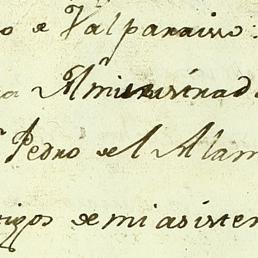 o de Valparaiso.
a Administrad
Pedro del Alam
tigos de mi asisten